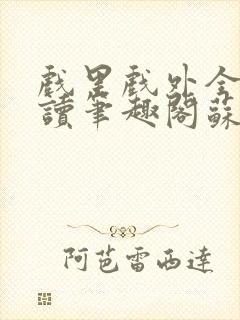 戲里戲外全
讀筆趣閣蘇
阿芭雷西達